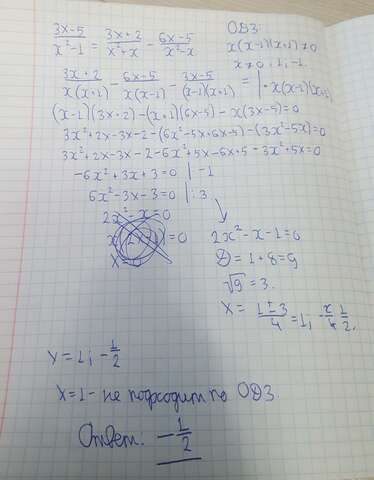 (3x-5)/(x²-1) = (3x+2)/(x²+x) - (6x-5)/(x²-x)
ОДЗ:
x(x-1)(x+1)≠0
x≠0; 1; -1.
(3x+2)/(x(x+1)) - (6x-5)/(x(x-1)) - (3x-5)/((x-1)(x+1)) = | · x(x-1)(x+1)
(x-1)(3x+2)-(x+1)(6x-5)-x(3x-5)=0
3x²+2x-3x-2-(6x²-5x+6x-5)-(3x²-5x)=0
3x²+2x-3x-2-6x²+5x-6x+5-3x²+5x=0
-6x²+3x+3=0 | ·-1
6x²-3x-3=0 | :3
2x²-x=0
=0
x=0
2x²-x-1=0
D=1+8=9
√9=3.
x= (1±3)/4 =1; -1/2.
x=1; -1/2
x=1- не подходит по ОДЗ.
Ответ: -1/2